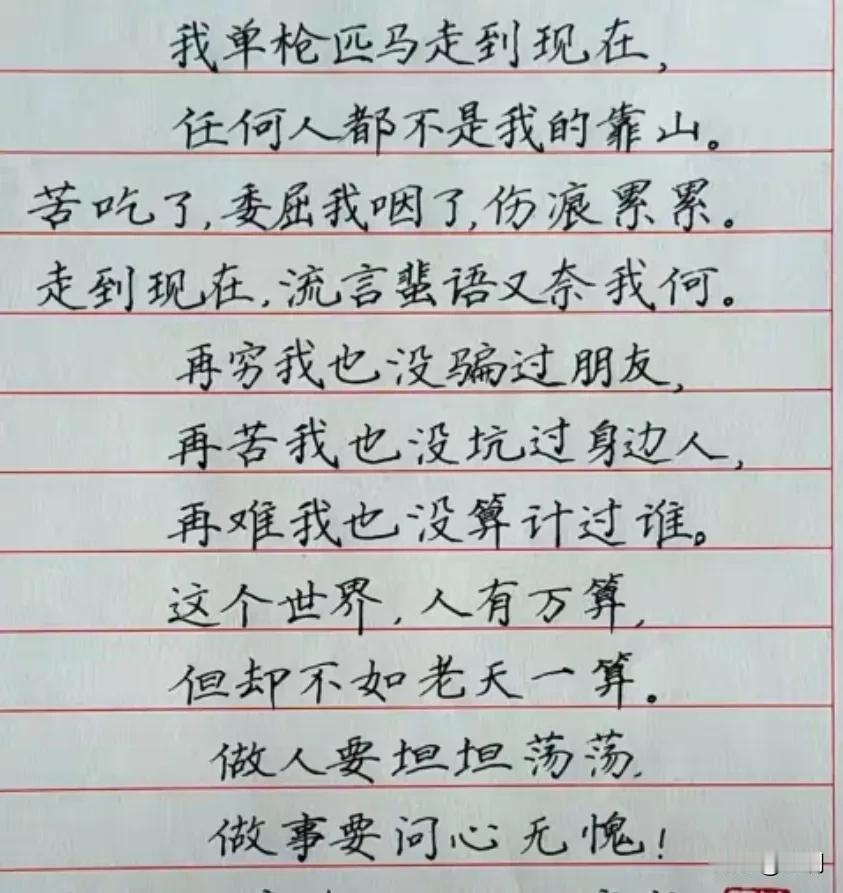 我单枪匹马走到现在,
任何人都不是我的靠山。
苦吃了,委屈我咽了,伤痕累累。
走到现在,流言蜚语又奈我何。
再穷我也没骗过朋友,
再苦我也没坑过身边人,
再难我也没算计过谁。
这个世界,人有万算,
但却不如老天一算。
做人要坦坦荡荡,
做事要问心无愧!